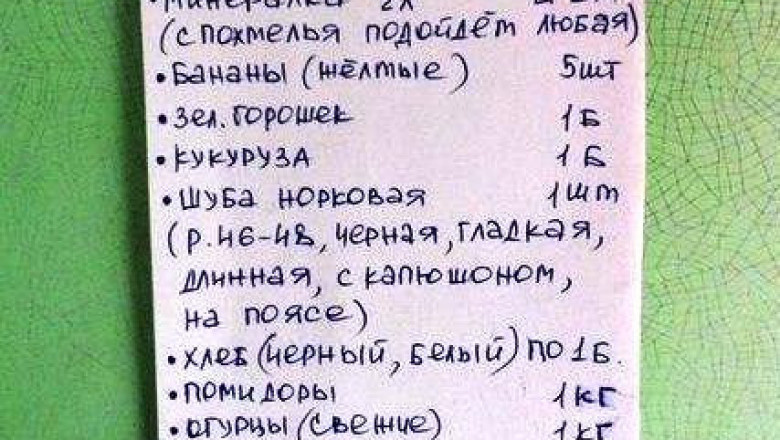 (с похмелья подойдёт любая)
• Бананы (жёлтые) 5шт
• Зел. горошек 1Б
• Кукуруза 1Б
• Шуба норковая 1шт
(р.46-48, черная, гладкая,
длинная, с капюшоном,
на поясе)
• Хлеб (черный, белый) по 1Б.
• Помидоры 1кг
• Огурцы (свежие) 1кг